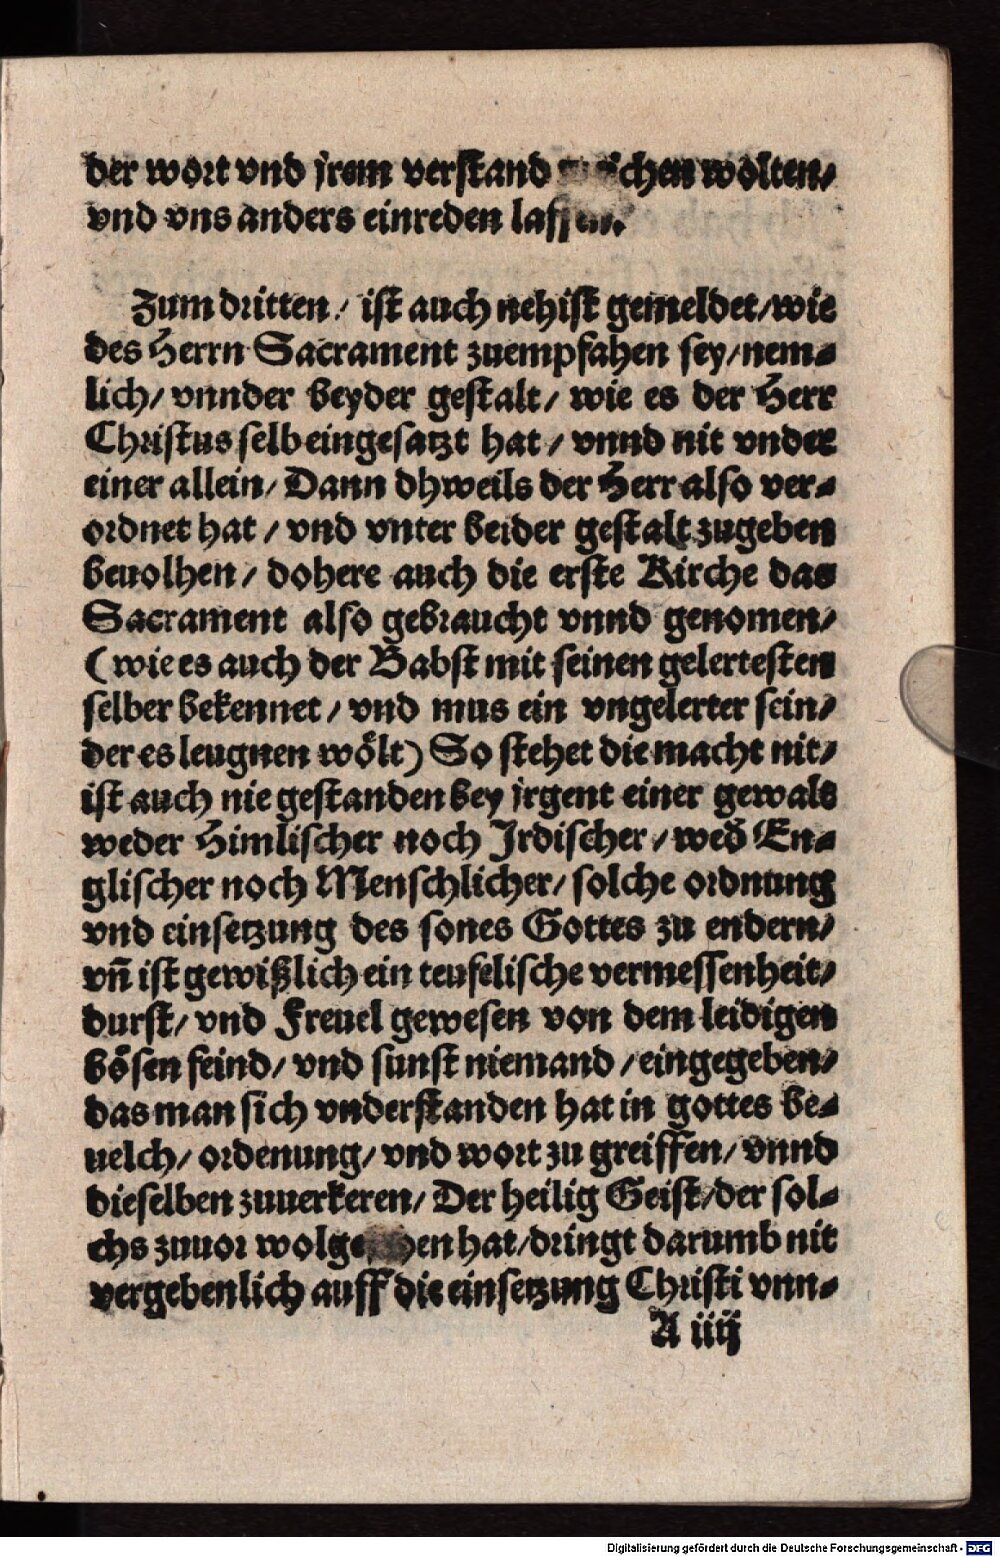 der wort vnd jrem verstand wolten/
vnd vns anders einreden lassen.
Zum dritten/ ist auch nehist gemeldet/wie
des Herrn Sacrament zuempfahen sey/nem-
lich/ vnnder beyder gestalt/ wie es der Herr
Christus selb eingesatzt hat/ vnnd nit vnder
einer allein/ Dann dhweils der Herr also ver-
ordnet hat/ vnd vnter beider gestalt zugeben
beuolhen/ dohere auch die erste Kirche das
Sacrament also gebraucht vnnd genomen/
(wie es auch der Babst mit seinen gelertesten
selber bekennet/ vnd mus ein vngelerter sein/
der es leugnen wölt) So stehet die macht nit/
ist auch nie gestanden bey jrgent einer gewalt
weder Himlischer noch Jrdischer/ wed̃ En-
glischer noch Menschlicher/ solche ordnung
vnd einsetzung des sones Gottes zu endern/
vn̄ ist gewißlich ein teufelische vermessenheit/
durst/ vnd Freuel gewesen von dem leidigen
bösen feind/ vnd sunst niemand/eingegeben/
das man sich vnderstanden hat in gottes be-
uelch/ ordenung/ vnd wort zu greiffen/ vnnd
dieselben zuuerkeren/ Der heilig Geist/der sol-
chs zuuor hat/dringt darumb nit
vergebenlich auff die einsetzung Christi vnn-
A iiij
Digitalisierung gefördert durch die Deutsche Forschungsgemeinschaft - DFG